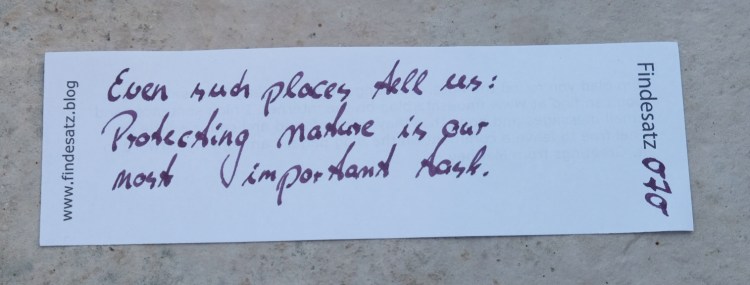 www.findesatz.blog
Even such places tell us:
Protecting nature is our
most important task.
Findesatz 070